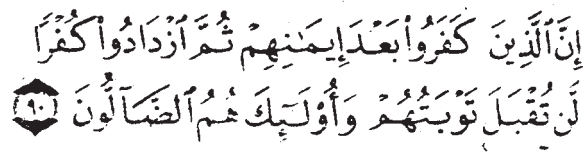 إِنَّ ٱلَّذِينَ كَفَرُوا۟ بَعْدَ إِيمَٰنِهِمْ ثُمَّ ٱزْدَادُوا۟ كُفْرًا
لَّن تُقْبَلَ تَوْبَتُهُمْ وَأُو۟لَٰٓئِكَ هُمُ ٱلضَّآلُّونَ ٩٠